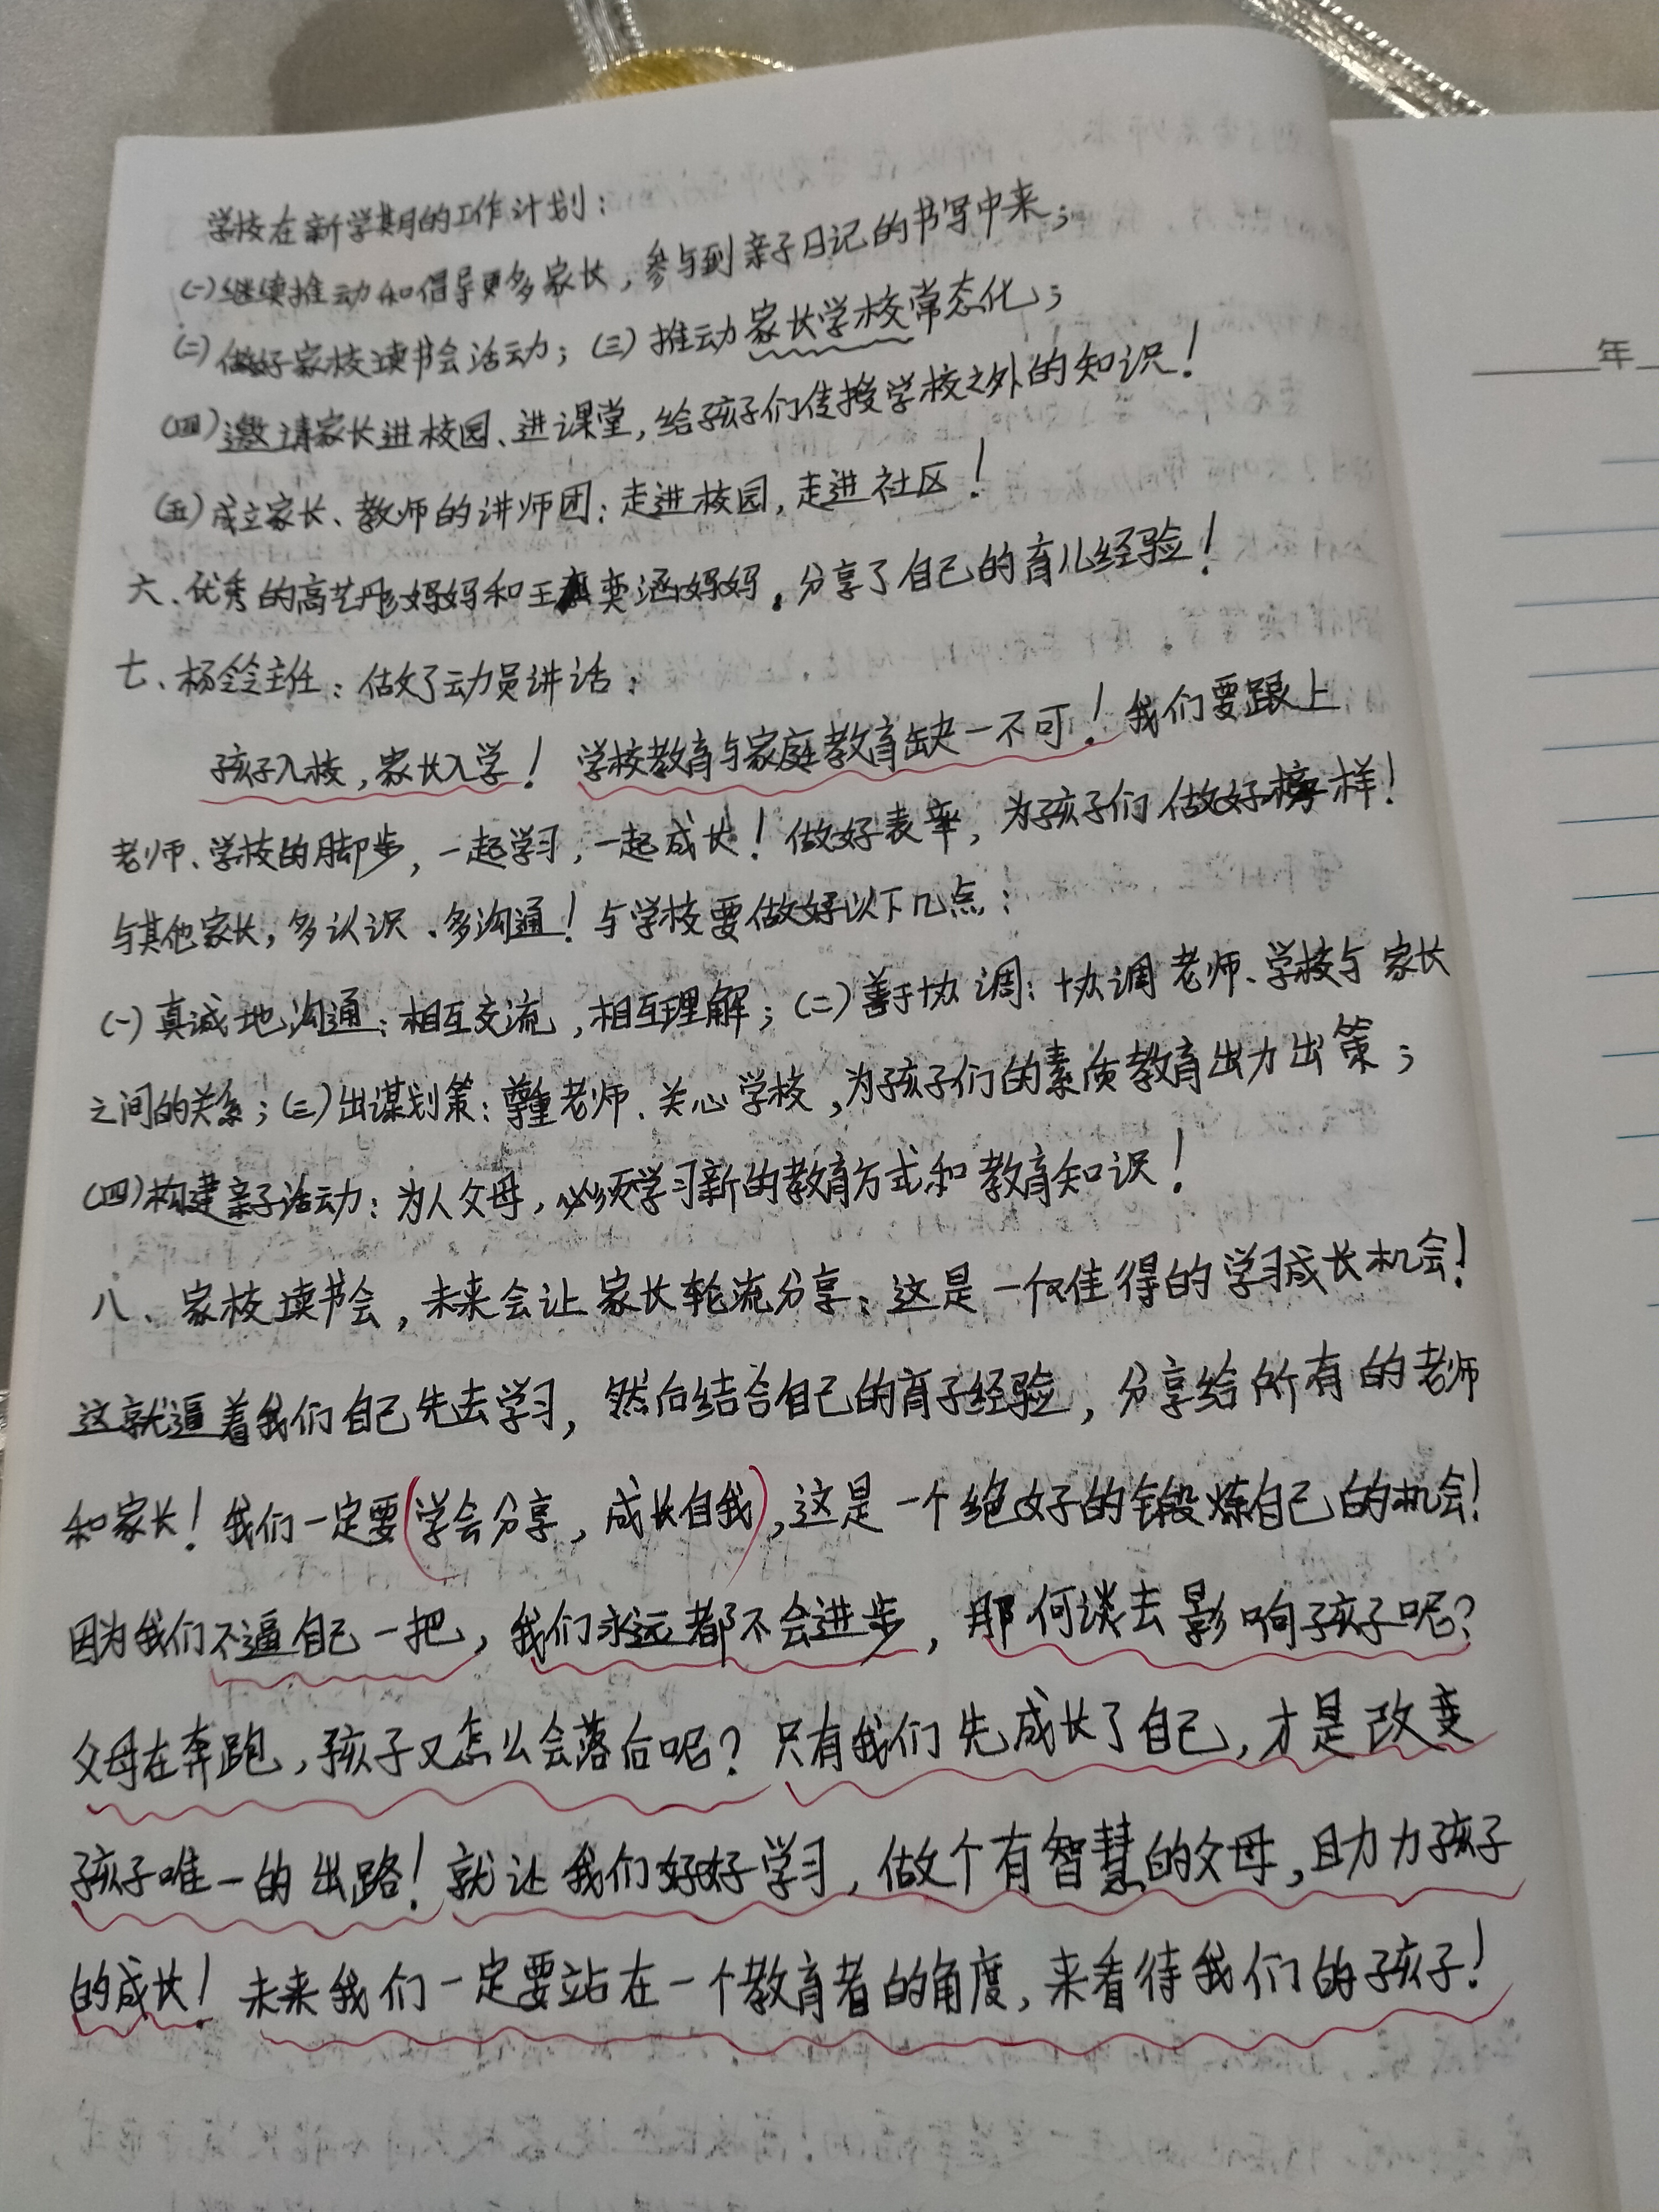 学校在新学期的工作计划：
(一)继续推动和倡导更多家长，参与到亲子日记的书写中来；
(二)做好家校读书会活动；(三)推动家长学校常态化；
(四)邀请家长进校园、进课堂，给孩子们传授学校之外的知识！
(五)成立家长、教师的讲师团：走进校园，走进社区！
六、优秀的高艺彤妈妈和王奕涵妈妈，分享了自己的育儿经验！
七、杨铃主任：做了动员讲话：
孩子入校，家长入学！学校教育与家庭教育缺一不可！我们要跟上
老师、学校的脚步，一起学习，一起成长！做好表率，为孩子们做好榜样！
与其他家长，多认识、多沟通！与学校要做好以下几点：
(一)真诚地沟通：相互交流，相互理解；(二)善于协调：协调老师、学校与家长
之间的关系；(三)出谋划策：尊重老师、关心学校，为孩子们的素质教育出力出策；
(四)构建亲子活动：为人父母，必须学习新的教育方式和教育知识！
八、家校读书会，未来会让家长轮流分享：这是一个难得的学习成长机会！
这就逼着我们自己先去学习，然后结合自己的育子经验，分享给所有的老师
和家长！我们一定要(学会分享，成长自我)，这是一个绝好的锻炼自己的机会！
因为我们不逼自己一把，我们永远都不会进步，那何谈去影响孩子呢？
父母在奔跑，孩子又怎么会落后呢？只有我们先成长了自己，才是改变
孩子唯一的出路！就让我们好好学习，做个有智慧的父母，助力孩子
的成长！未来我们一定要站在一个教育者的角度，来看待我们的孩子！
年